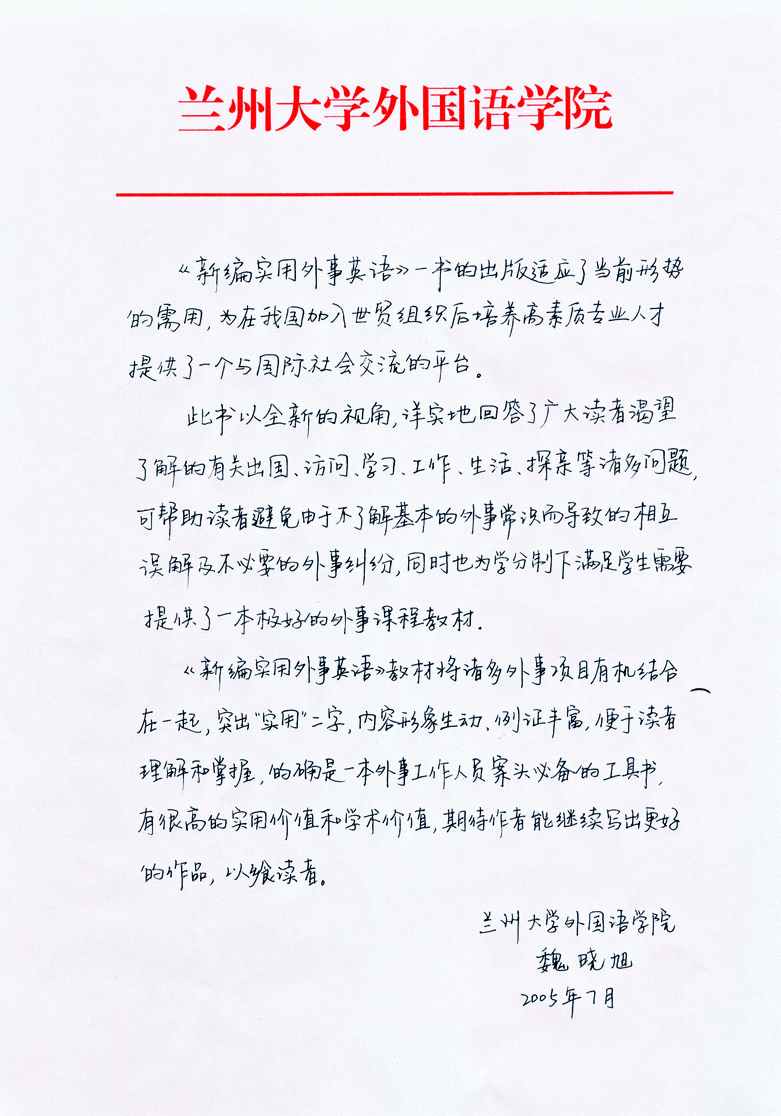 兰州大学外国语学院
《新编实用外事英语》一书的出版适应了当前形势
的需用,为在我国加入世贸组织后培养高素质专业人才
提供了一个与国际社会交流的平台。
此书以全新的视角,详实地回答了广大读者渴望
了解的有关出国、访问、学习、工作、生活、探亲等诸多问题,
可帮助读者避免由于不了解基本的外事常识而导致的相互
误解及不必要的外事纠纷,同时也为学分制下满足学生需要
提供了一本极好的外事课程教材.
《新编实用外事英语》教材将诸多外事项目有机结合
在一起,突出“实用”二字,内容形象生动、例证丰富,便于读者
理解和掌握,的确是一本外事工作人员案头必备的工具书,
有很高的实用价值和学术价值,期待作者能继续写出更好
的作品,以飨读者。
兰州大学外国语学院
魏晓旭
2005年7月